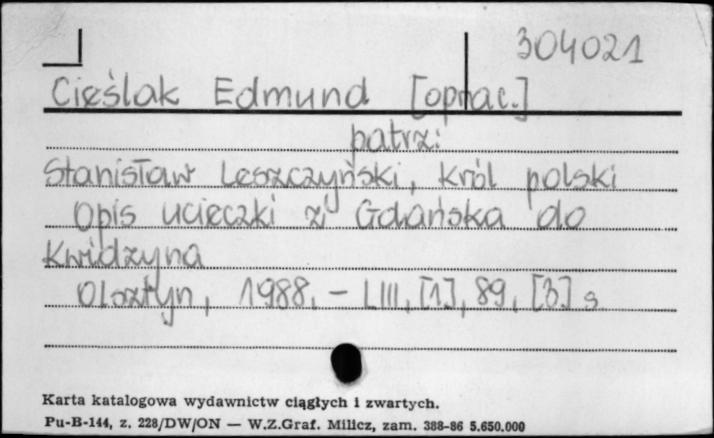 304021
Cieślak Edmund [oprac.]
patrz:
Stanisław Leszczyński, król polski
Opis ucieczki z Gdańska do
Kwidzyna
Olsztyn, 1988. – LIII, [1], 89, [3] s
Karta katalogowa wydawnictw ciągłych i zwartych.
Pu-B-144, z. 228/DW/ON — W.Z.Graf. Milicz, zam. 388-86 5.650.000